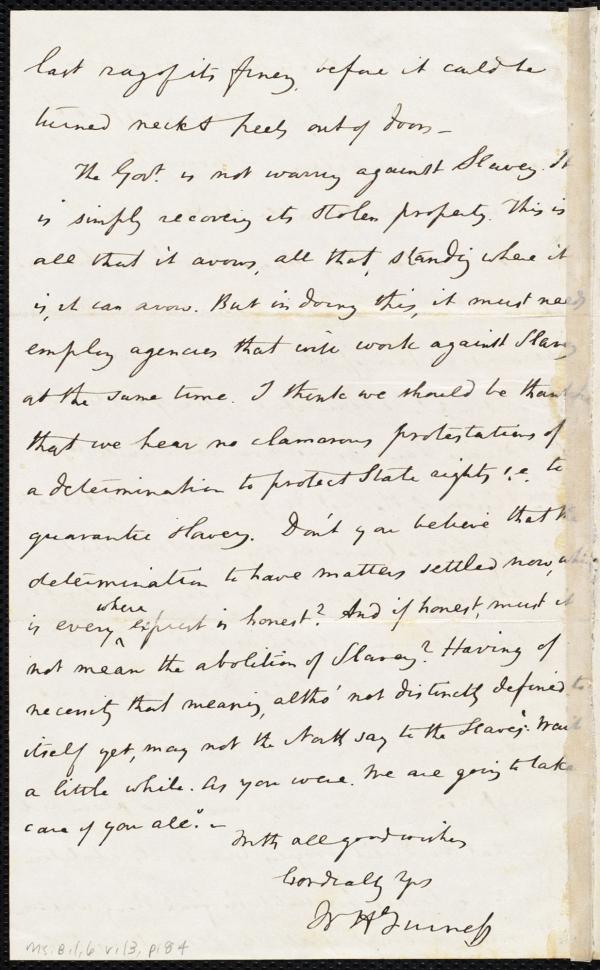 last rag of its finery, before it could be
turned neck & heels out of doors —
The Govt. is not warring against Slavery. It
is simply recovering its stolen property. This is
all that it avows, all that, standing where it
is, it can avow. But in doing this, it must needs
employ agencies that will work against Slavery
at the same time. I think we should be thankful
that we hear no clamorous protestations of
a determination to protect State rights i.e. to
guarantee slavery. Don't you believe that the
determination to have matters settled now, which
is every where exprest is honest? And if honest, must it
not mean the abolition of Slavery? Having of
necessity that meaning, altho' not distinctly defined to
itself yet, may not the North say to the Slaves: "Wait
a little while. As you were. We are going to take
care of you all." —
With all good wishes
Cordially Yrs
W H Furness
Ms. B.1.6 v.13, p.84